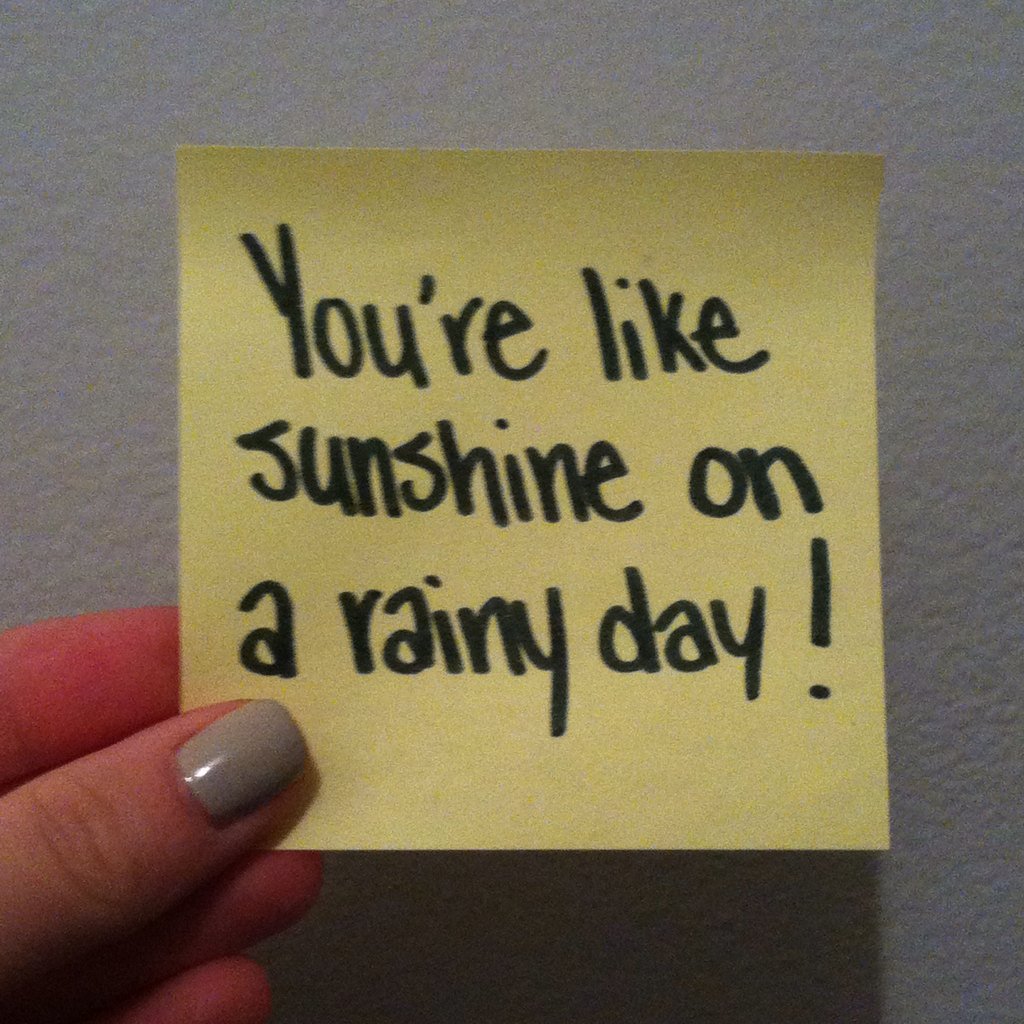 You're like
sunshine on
a rainy day!